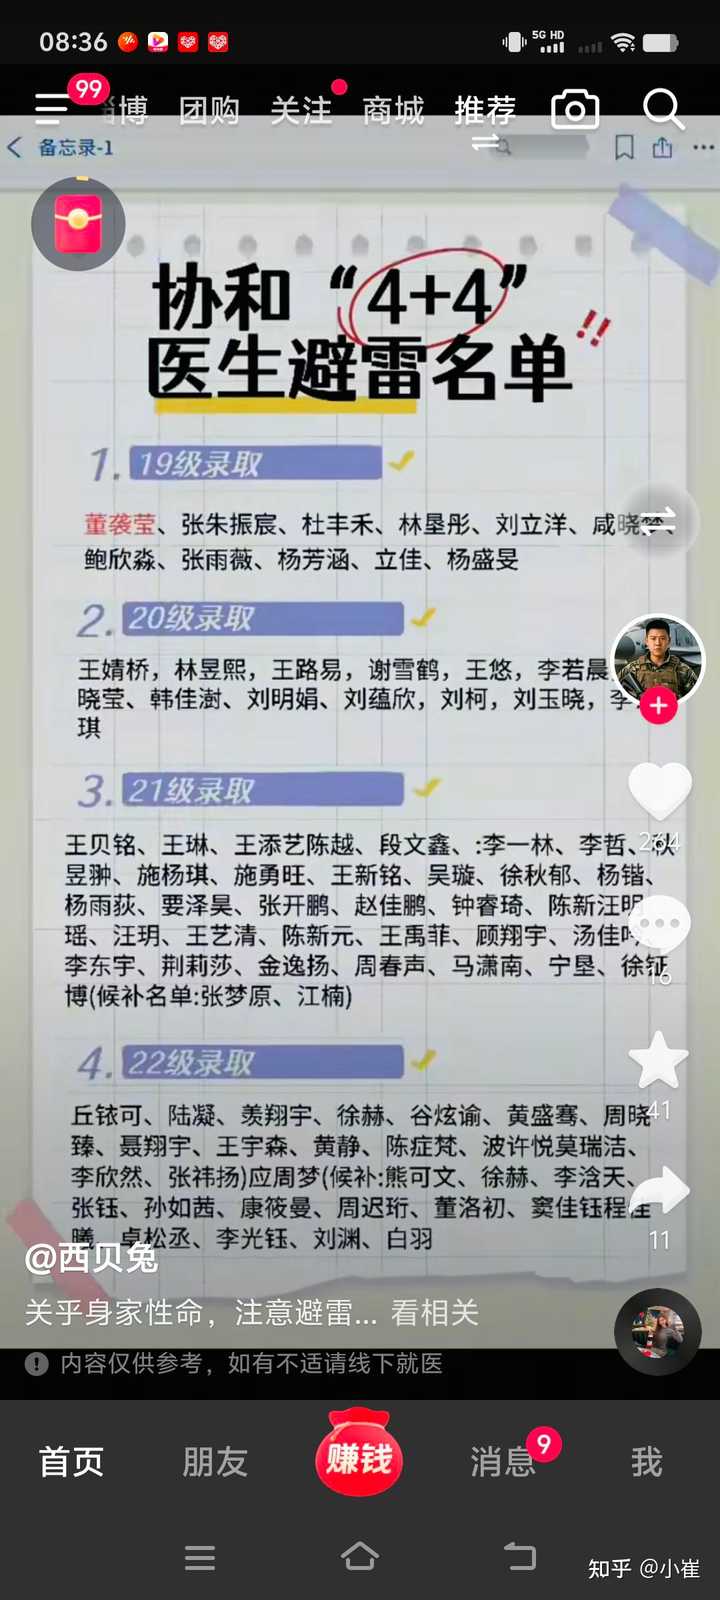 08:36
5G HD
99
博 团购 关注 商城 推荐
备忘录-1
协和“4+4”
医生避雷名单
!!
1. 19级录取
董袭莹、张朱振宸、杜丰禾、林垦彤、刘立洋、咸晓梦、
鲍欣淼、张雨薇、杨芳涵、立佳、杨盛旻
2. 20级录取
王婧桥，林昱熙，王路易，谢雪鹤，王悠，李若晨
晓莹、韩佳澍、刘明娟、刘蕴欣，刘柯，刘玉晓，李
琪
3. 21级录取
王贝铭、王琳、王添艺陈越、段文鑫、:李一林、李哲、
昱翀、施杨琪、施勇旺、王新铭、吴璇、徐秋郁、杨锴、
杨雨荻、要泽昊、张开鹏、赵佳鹏、钟睿琦、陈新汪明
瑶、汪玥、王艺清、陈新元、王禹菲、顾翔宇、汤佳吟、
李东宇、荆莉莎、金逸扬、周春声、马潇南、宁垦、徐钲
博(候补名单:张梦原、江楠)
4. 22级录取
丘铱可、陆凝、羡翔宇、徐赫、谷炫谕、黄盛骞、周晓
臻、聂翔宇、王宇森、黄静、陈症梵、波许悦莫瑞洁、
李欣然、张祎扬)应周梦(候补:熊可文、徐赫、李浛天、
张钰、孙如茜、康筱曼、周迟珩、董洛初、窦佳钰程佳
曦、卓松丞、李光钰、刘渊、白羽
264
16
41
11
@西贝兔
关乎身家性命，注意避雷... 看相关
内容仅供参考，如有不适请线下就医
首页 朋友 赚钱 消息 9 我
知乎 @小崔